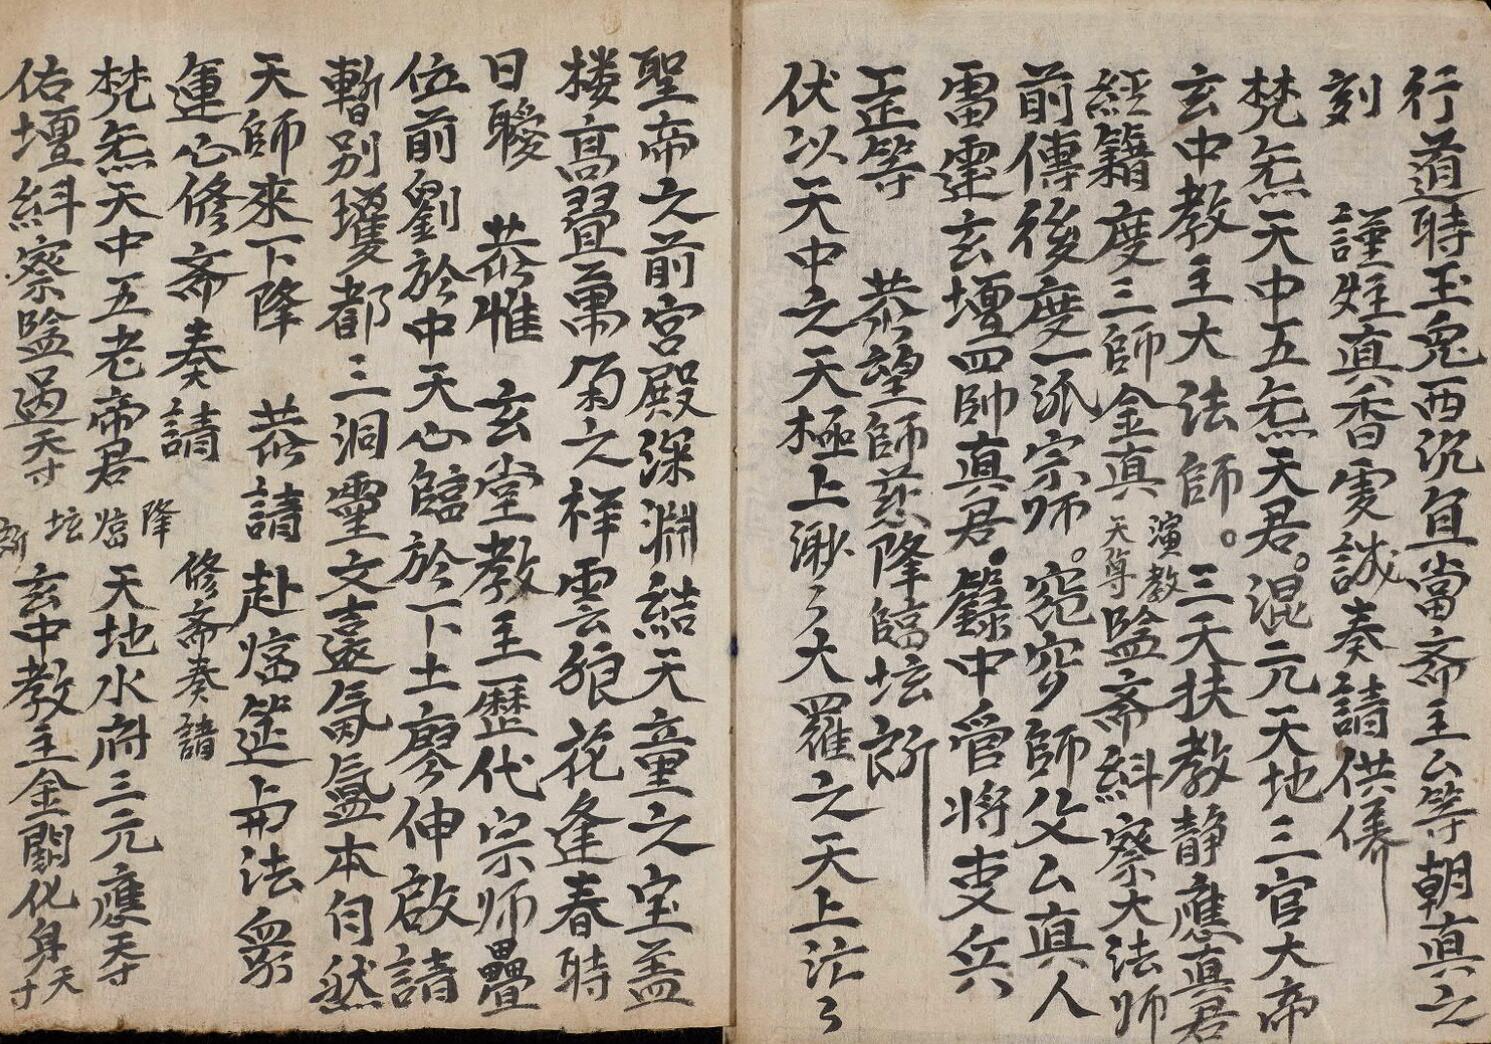 行道時玉兔西沉直當斋主厶等朝真之
刻　謹炷真香虔誠奏請供養
梵炁天中五炁天君。混元天地三官大帝
玄中教主大法師。三天扶教静應真君
經籍度三師金真演教天尊監斋糾察大法师
前傳後度一派宗师。師父厶真人
雷霆玄壇四帥真君。籙中官将吏兵
等　恭望師慈降臨坛所
伏以天中之天天極上渺々大羅之天天上茫々
聖帝之前宮殿深淵結天童之宝盖
楼高疊萬之祥雲花逢春時
日曖　恭惟　玄堂教主歷代宗师疊
位前劉於中天心臨於下土廖伸啟請
暫别都三洞靈文氤氳本自然
天師來下降　恭請赴筵上冉法衆
運心修斋奏請　修斋奏請
梵炁天中五老帝君降临坛所天地水府三元應天寸
佑壇糾察監过天寸　玄中教主金闕化身天寸